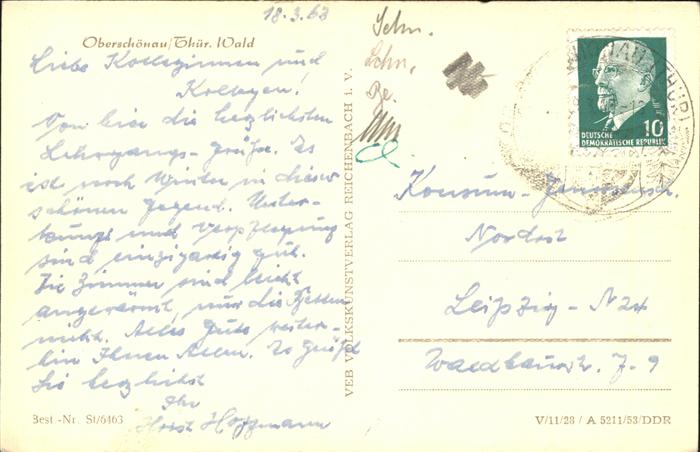 18.3.63
Oberschönau/Thür. Wald
Liebe Kolleginnen und
Kollegen!
Von hier die herzlichsten
Lehrgangs-grüße. Es
ist noch Winter in dieser
schönen Gegend. Unter-
kunft und Verpflegung
sind einzigartig gut.
Die Zimmer sind leicht
angewärmt, nur die Betten
nicht. Alles Gute weiter-
hin Ihnen Allen. Es grüßt
Sie herzlichst
Ihr
Horst Hoffmann
Best.-Nr. St/6463
VEB VOLKSKUNSTVERLAG REICHENBACH I. V.
Schn.
Be.
10
DEUTSCHE
DEMOKRATISCHE REPUBLIK
Konsum-Genossensch.
Nordost
Leipzig - N 24
V/11/28 / A 5211/53/DDR